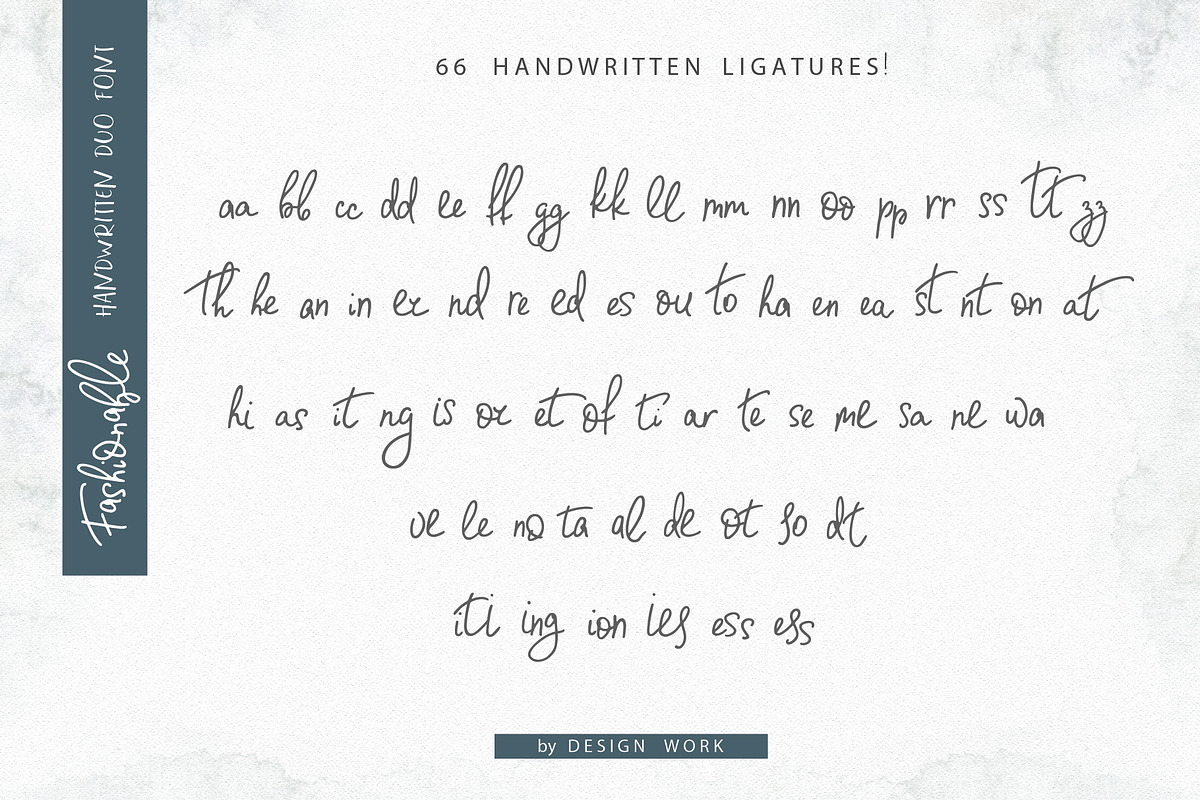 66 HANDWRITTEN LIGATURES!
aa bb cc dd ee ff gg kk ll mm nn oo pp rr ss tt zz
th he an in er nd re ed es ou to ha en ea st nt on at
hi as it ng is or et of ti ar te se me sa ne wa
ve le no ta al de ot so dt
iti ing ion ies ess ess
by DESIGN WORK
Fashionable HANDWRITTEN DUO FONT